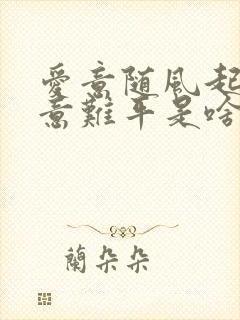 愛意随風起
意難平是啥
蘭朵朵